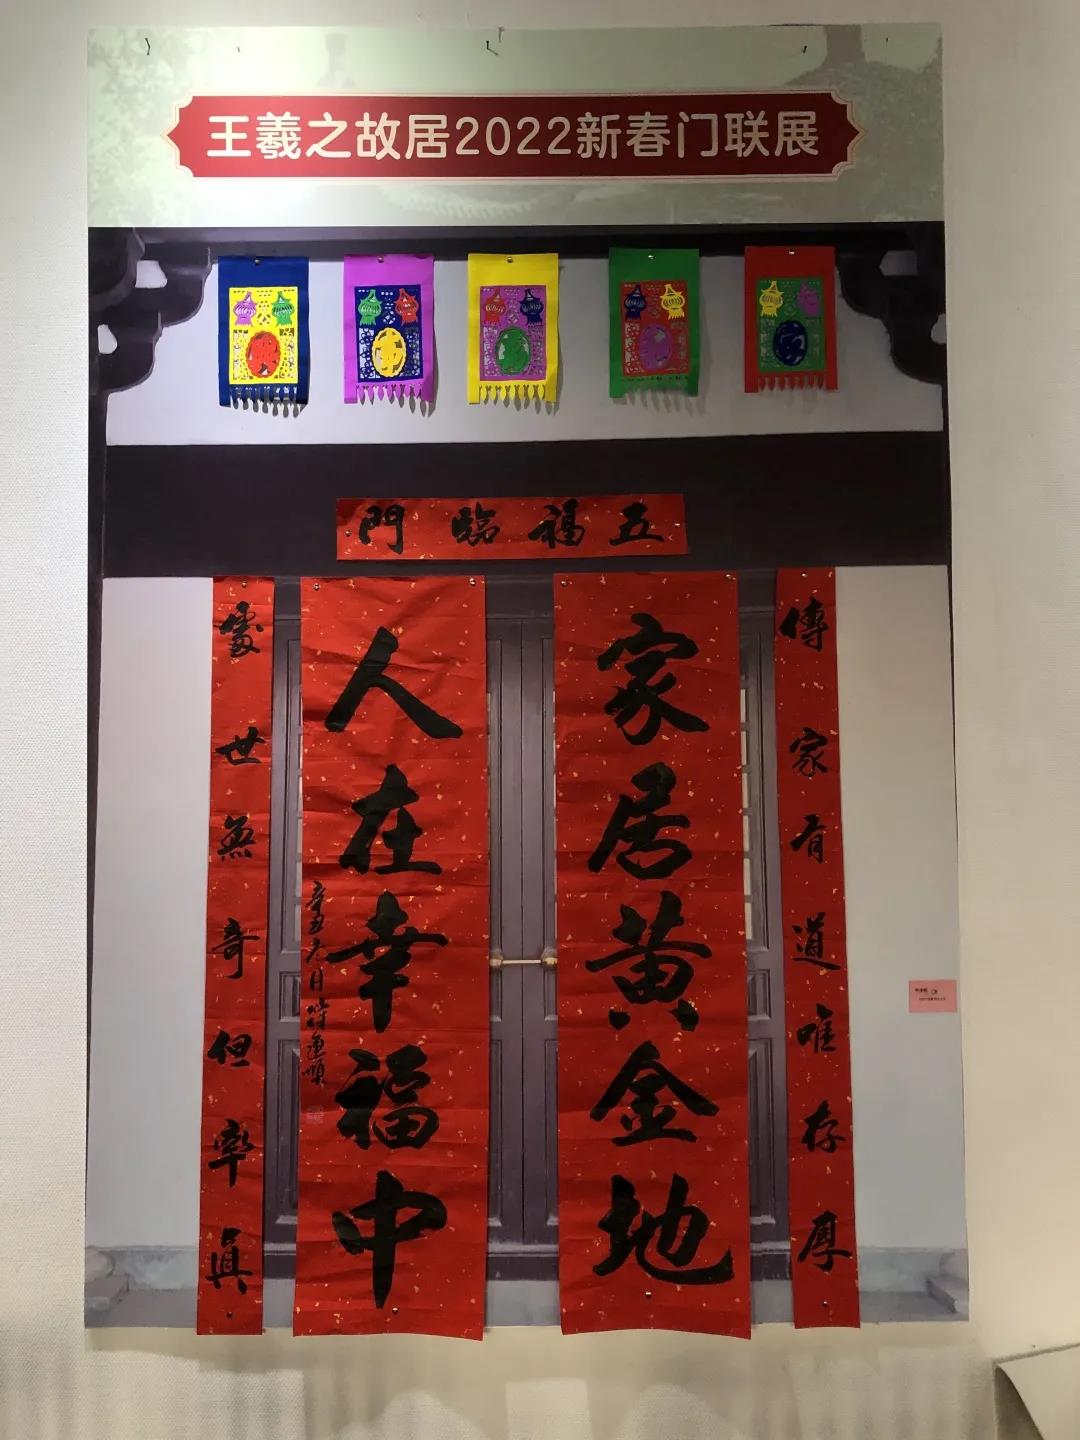 王羲之故居2022新春门联展
五福臨門
傳家有道唯存厚
家居黄金地
人在幸福中
辛丑六月符運順
處世無奇但率真